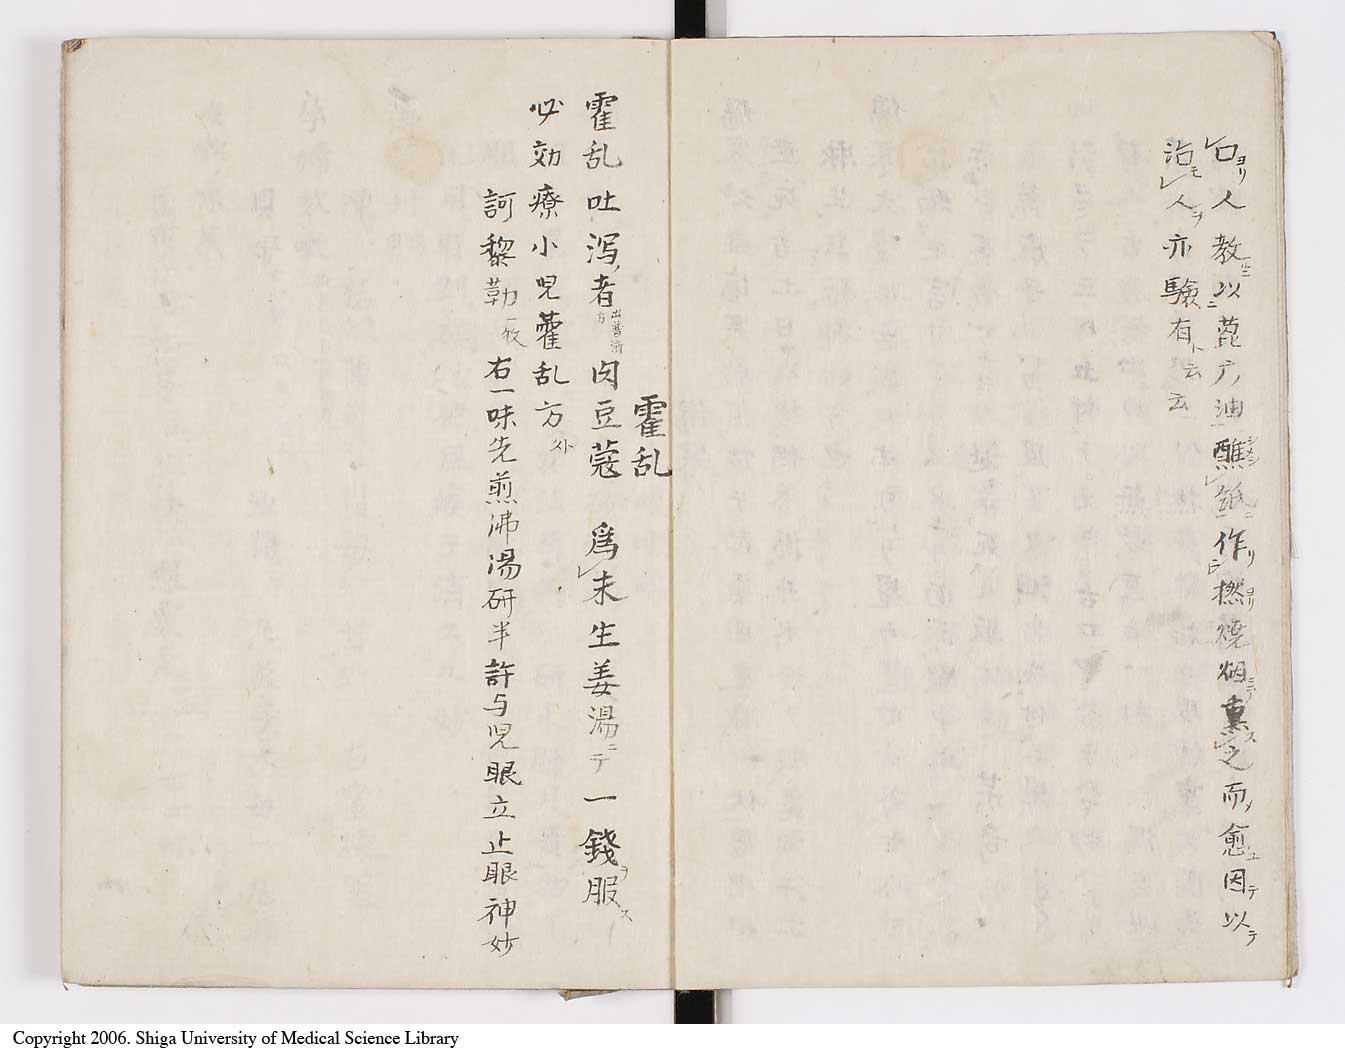 口ヨリ人教以蓖广油醮紙ニ作リ撚ヨリ焼烟ニテ薫ス之而メ愈ユ因テ以テ
治モ人ヲ亦驗有ト云云
霍乱
霍乱吐瀉者出普濟方肉豆蔻 為末生姜湯ニテ一錢ヲ服ス
必効療小児藿乱方外
訶黎勒一枚右一味先煎沸湯研半許与児眼立止眼神妙
Copyright 2006. Shiga University of Medical Science Library